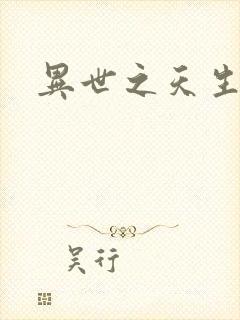 異世之天生
吴行